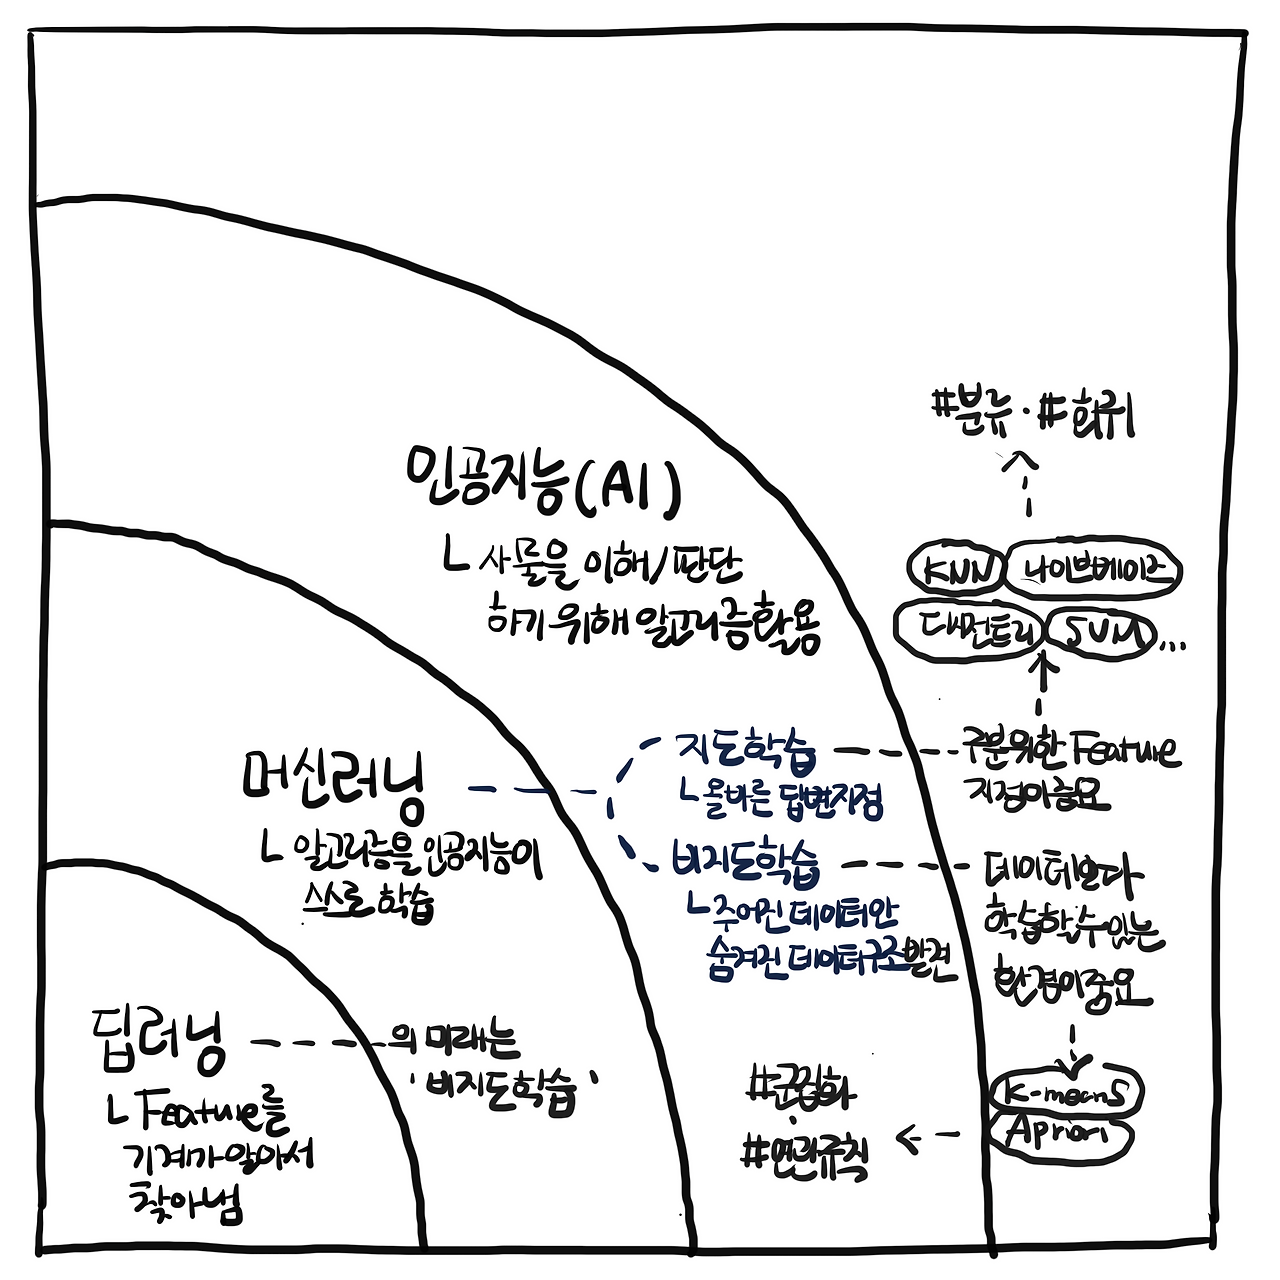 #분류·#회귀
KNN 나이브베이즈
디씨전트리 SVM...
인공지능(AI)
ㄴ 사물을 이해/판단
하기 위해 알고리즘활용
머신러닝
ㄴ 알고리즘을 인공지능이
스스로 학습
지도학습
ㄴ올바른 답변지정
구분위한 Feature
지정이중요
비지도학습
ㄴ주어진 데이터안
숨겨진 데이터구조발견
데이터보다
학습할수있는
환경이중요
K-means
Apriori
#군집화
·
#연관규칙
딥러닝
ㄴ Feature를
기계가 알아서
찾아냄
의 미래는
'비지도학습'